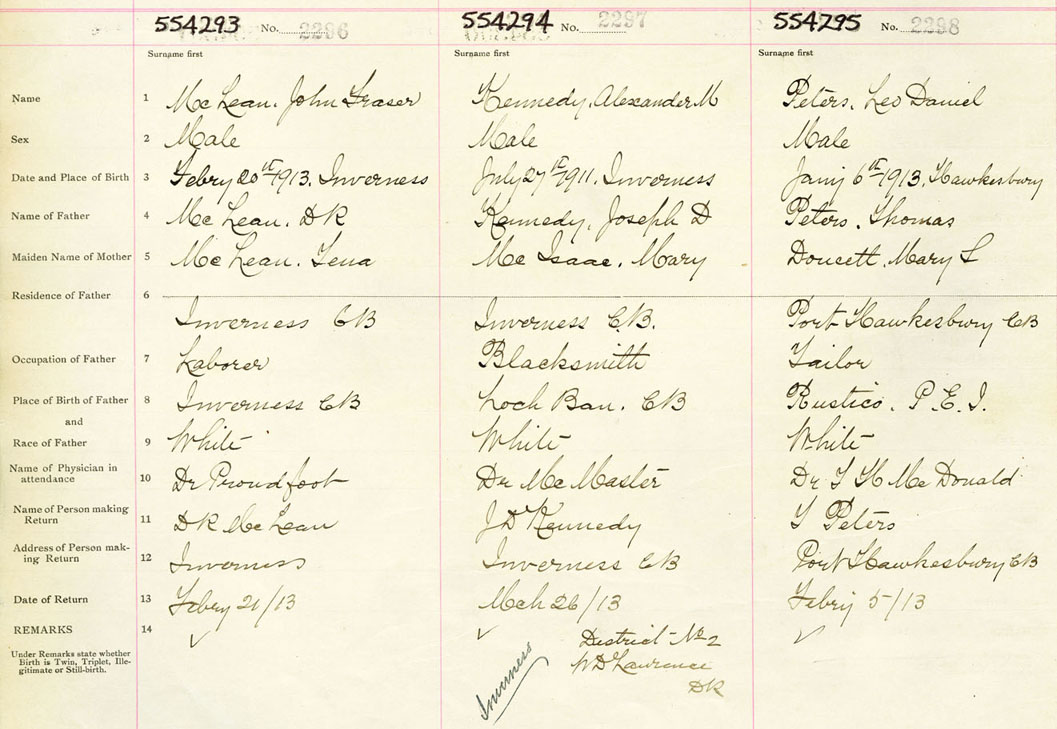 554293 No. 2296 554294 No. 2297 554295 No. 2298
Surname first Surname first Surname first
Name 1 Mc Lean, John Fraser Kennedy, Alexander M Peters, Leo Daniel
Sex 2 Male Male Male
Date and Place of Birth 3 Febry 20th 1913, Inverness July 27th 1911, Inverness Jany 6th 1913, Hawkesbury
Name of Father 4 Mc Lean, DR Kennedy, Joseph D Peters, Thomas
Maiden Name of Mother 5 Mc Lean, Lena Mc Isaac, Mary Doucett, Mary L
Residence of Father 6
Inverness CB Inverness C.B. Port Hawkesbury CB
Occupation of Father 7 Laborer Blacksmith Tailor
Place of Birth of Father 8 Inverness CB Loch Ban, CB Rustico, P.E.I.
and
Race of Father 9 White White White
Name of Physician in
attendance 10 Dr Proudfoot Dr Mc Master Dr Mc Donald
Name of Person making
Return 11 DR Mc Lean J D Kennedy T Peters
Address of Person mak-
ing Return 12 Inverness Inverness CB Port Hawkesbury CB
Date of Return 13 Febry 21/13 Mch 26/13 Febry 5/13
REMARKS 14
Under Remarks state whether
Birth is Twin, Triplet, Ille-
gitimate or Still-birth.
Inverness
District No 2
W D Lawrence
DR